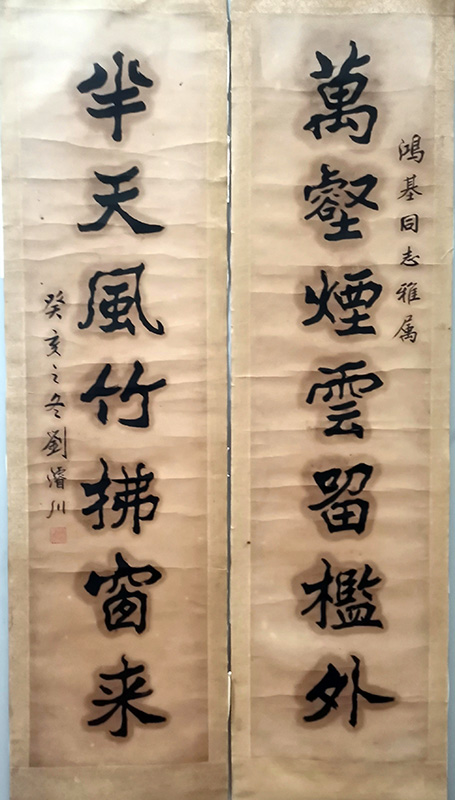 鴻基同志雅属
萬壑煙雲留檻外
半天風竹拂窗来
癸亥之冬劉濬川